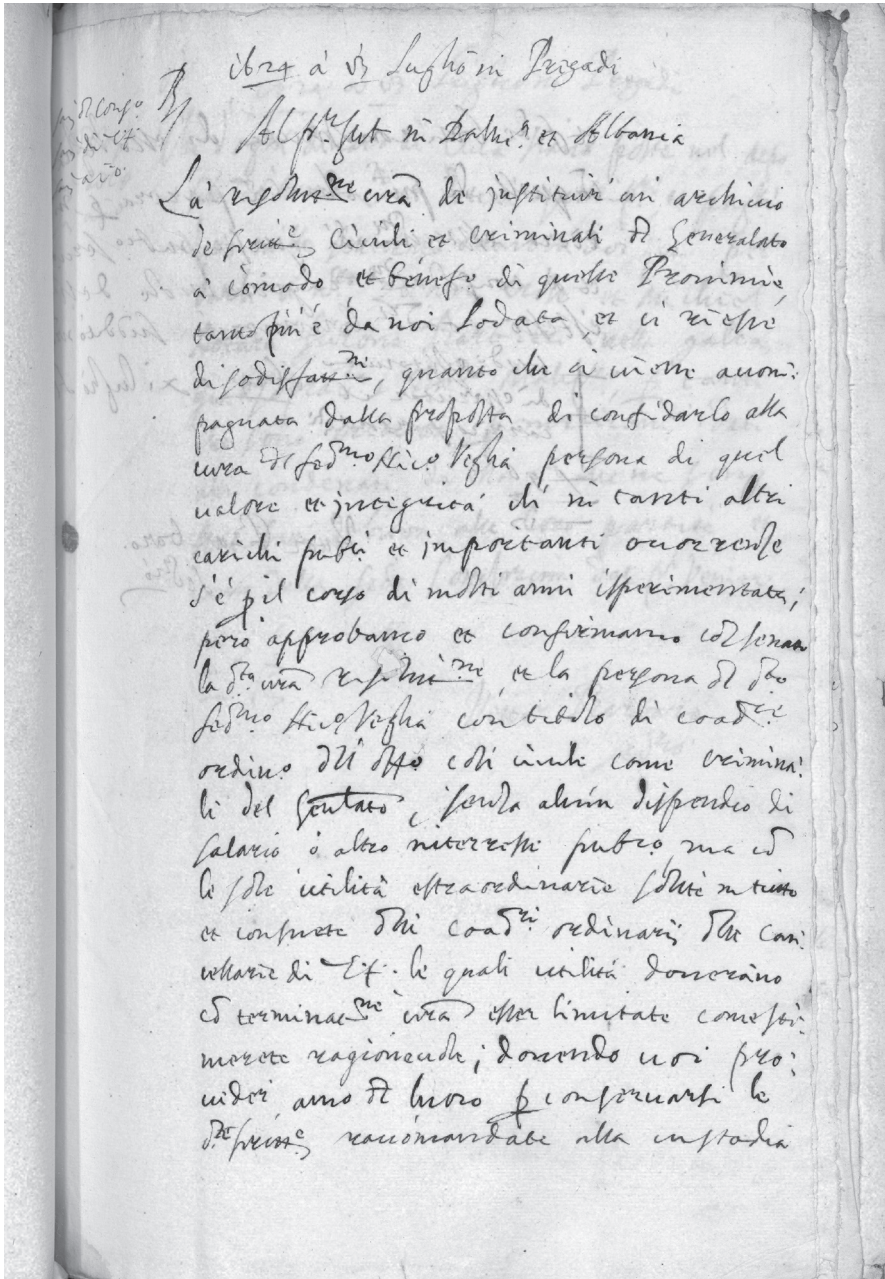 1624 à 13 Luglio in Pregadi
Al Pr. Gnāl in Dalm.ª et Albania
La risolut.ne vrā de instituir un archivio
de scritt.e civili et criminali dl Generalato
à comodo et benef.o di quelle Provincie,
tanto più è da noi lodata, et ci riesce
di sodisfatt.ne, quanto che ci viene accom:
pagnata dalla proposta di confidarlo alla
cura dl fed.mo Nic.o Veglia persona di quel
valore et integrità ch'in tanti altri
carichi pub.ci et importanti occorrenze
s'è p il corso di molti anni isperimentata;
però approbamo et confirmamo col senato
la d.ta vrā risolut.ne, et la persona dl dto
fed.mo Nic.o Veglia con titolo di coad.re
ordin.o dll'off.o così civile come crimina:
li del Gen̄lato, senza alcun dispendio di
salario ò altro interesse pub.co, ma cō
le sole utilità estraordinarie solite in tutto
et consuete dlli coad.ri ordinarij dlle can:
cellarie di le quali utilità doverano
cō terminat.ne vrā esser limitate come sti:
merete ragionevole; dovendo voi pro:
veder anco dl luoco p conservarsi le
d.te scritt.e raccomandate alla custodia